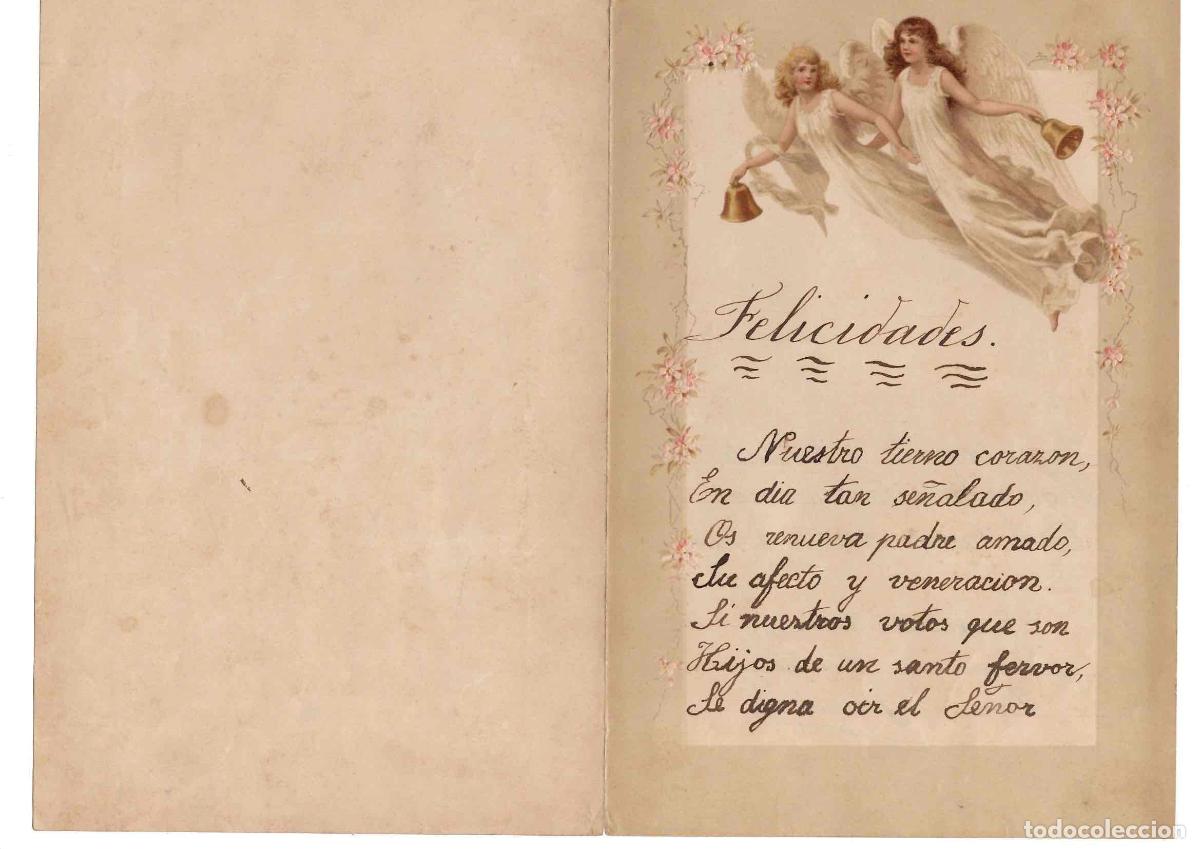 Felicidades.
Nuestro tierno corazon,
En dia tan señalado,
Os renueva padre amado,
Su afecto y veneracion.
Si nuestros votos que son
Hijos de un santo fervor,
Se digna oir el Señor
todocoleccion